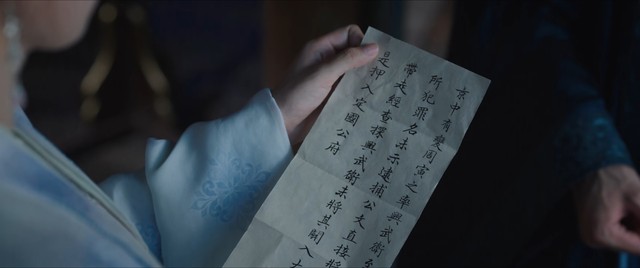 京中有變周寅之率興武衛
所犯罪名未示逮捕公文直接將
帶走經查探興武衛未將其關入大
是押入定國公府